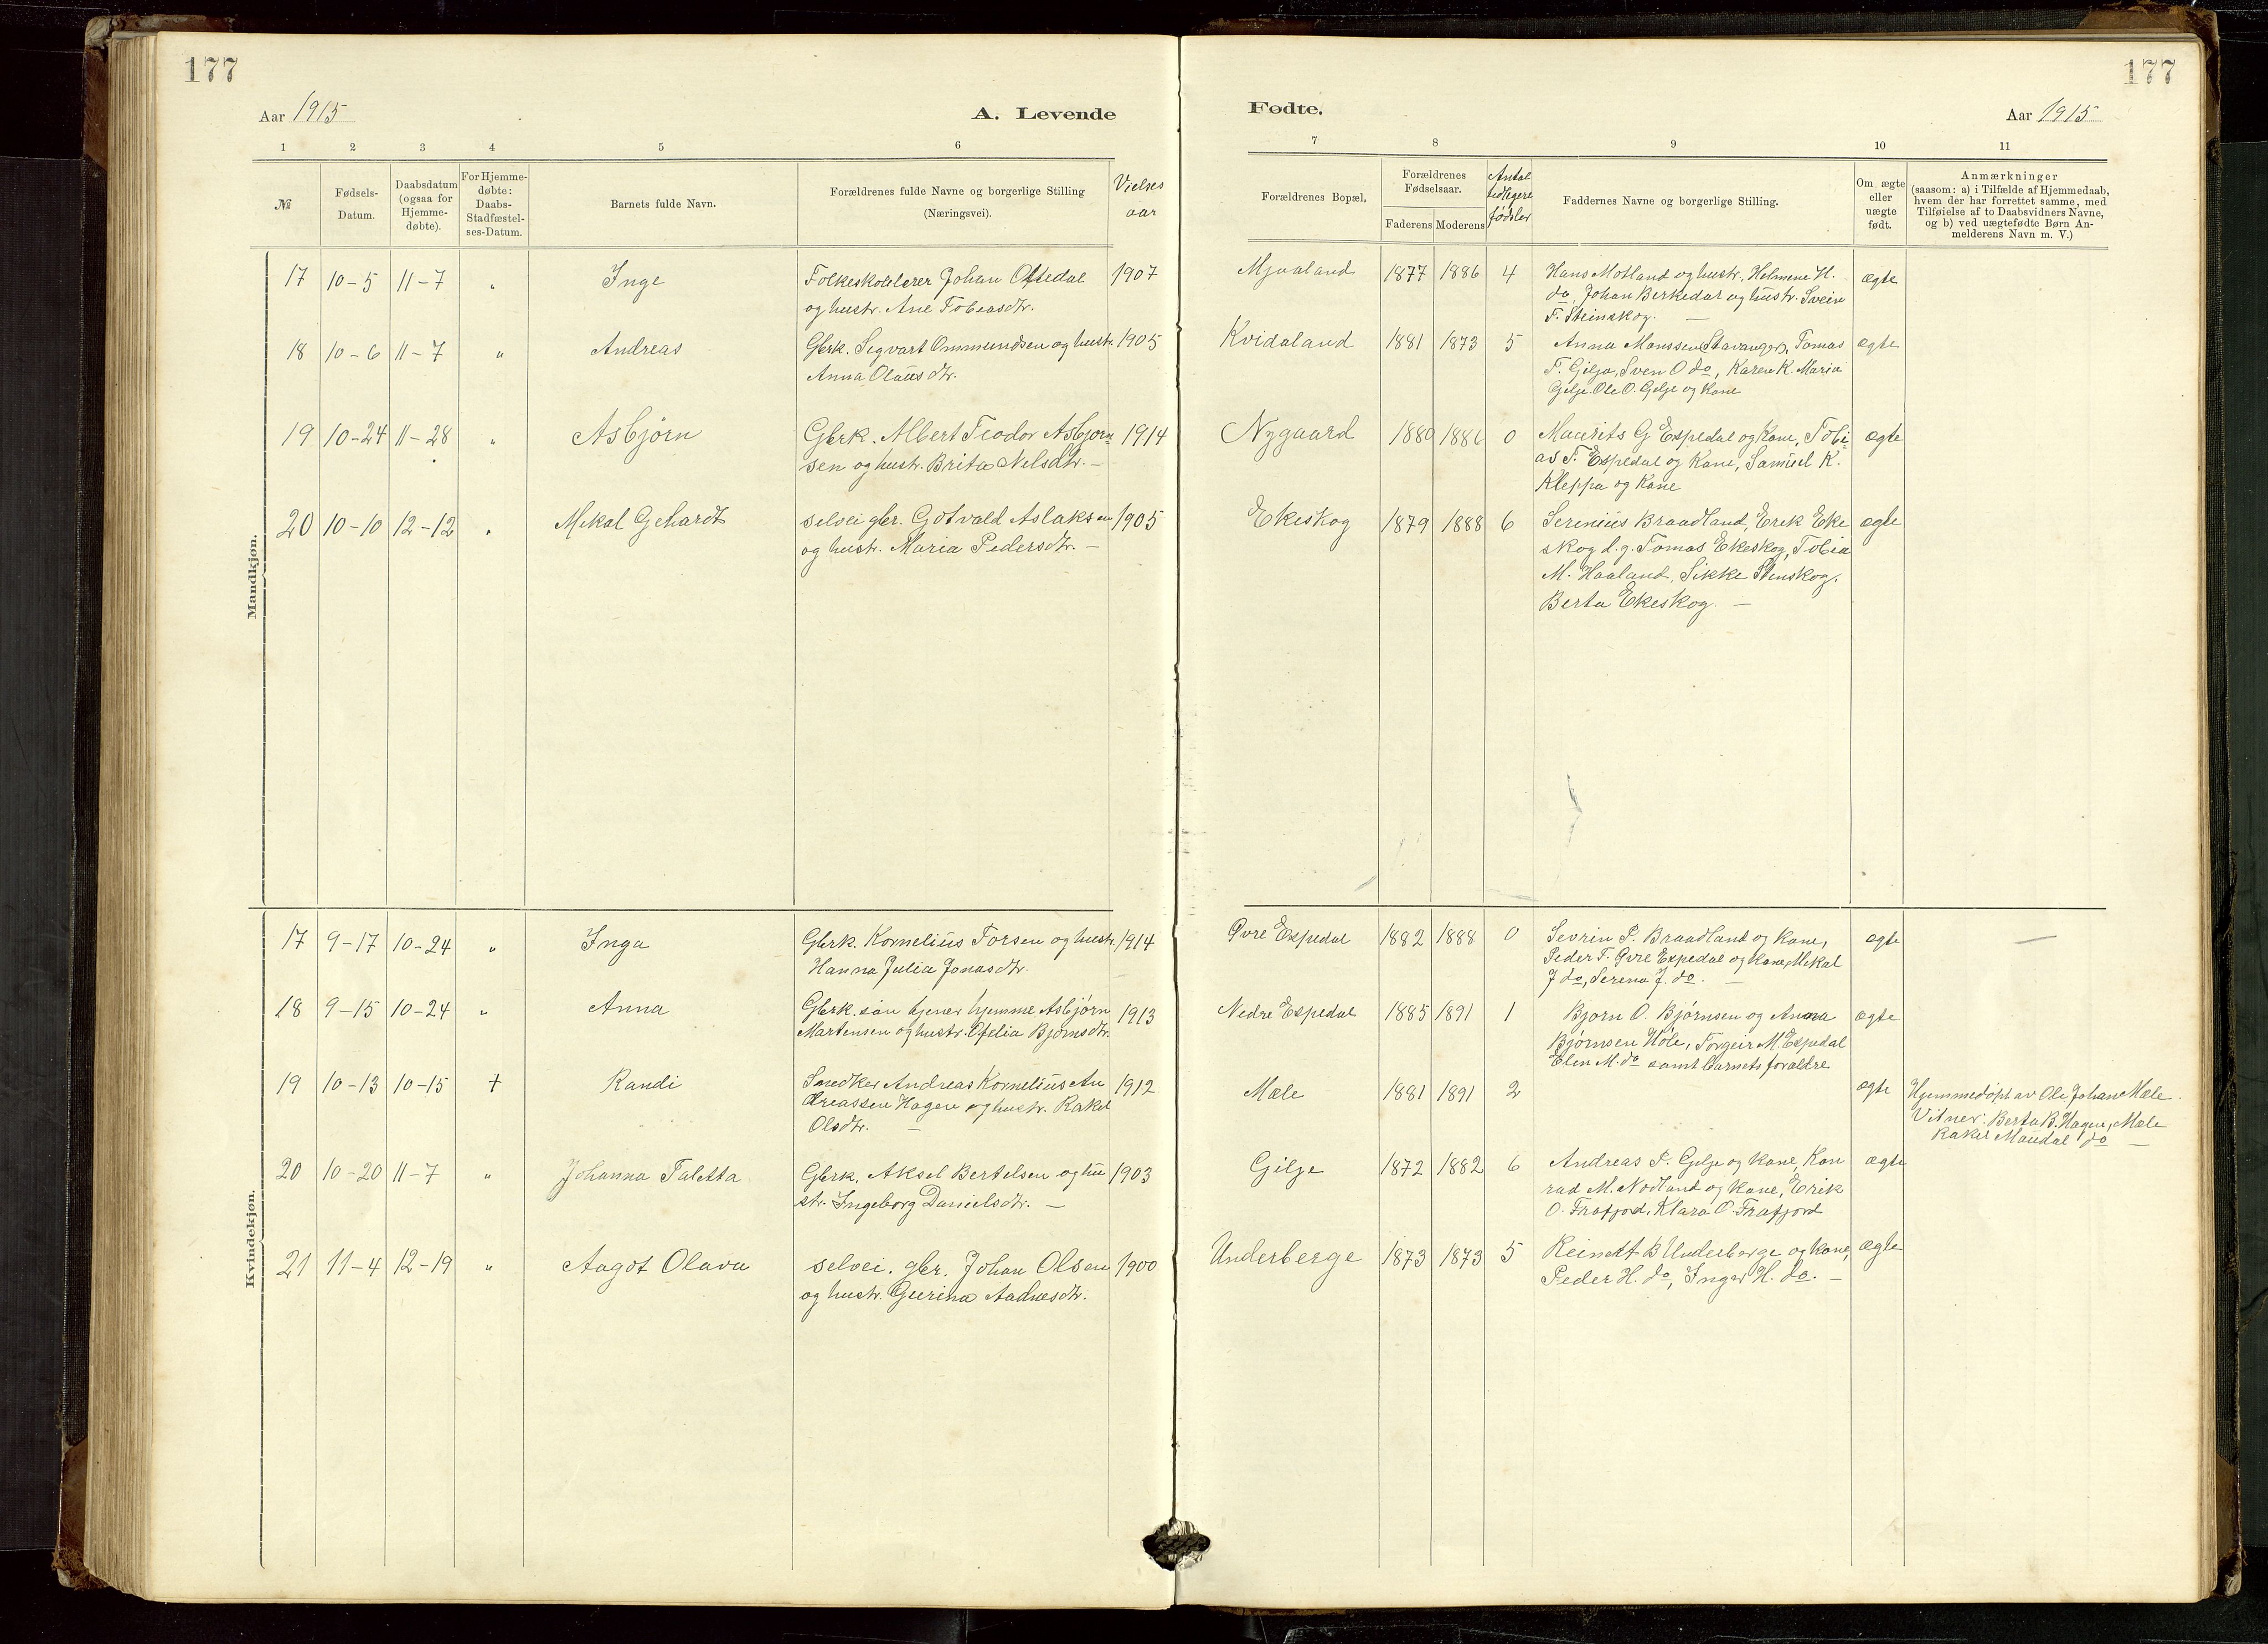 177
177
Aar 1915
A. Levende
Fødte.
Aar 1915
1 2 3 4 5 6
7 8 9 10 11
№
Fødsels-Datum.
Daabsdatum (ogsaa for Hjemme-døbte).
For Hjemme-døbte: Daabs-Stadfæstel-ses-Datum.
Barnets fulde Navn.
Forældrenes fulde Navne og borgerlige Stilling (Næringsvei).
Vielses aar
Forældrenes Bopæl.
Forældrenes Fødselsaar.
Faderens Moderens
Antal tidligere fødsler
Faddernes Navne og borgerlige Stilling.
Om ægte eller uægte født.
Anmærkninger
(saasom: a) i Tilfælde af Hjemmedaab, hvem der har forrettet samme, med Tilføielse af to Daabsvidners Navne, og b) ved uægtefødte Børn An-melderens Navn m. V.)
Mandkjøn.
17 10-5 11-7 " Inge Folkeskolelærer Johan Oftedal 1907
og hustr. Ane Tobiasdtr.
Mjaaland 1877 1886 4 Hans Motland og hustr. Helmine H. ægte
do, Johan Berkedal og hustr. Svein
T. Steinskog. —
18 10-6 11-7 " Andreas Gbrk. Sigvart Ommundsen og hustr. 1905
Anna Olausdtr.
Kvidaland 1881 1873 5 Anna Monssen (Stavanger), Tomas ægte
T. Gilja, Sven O do, Karen K. Maria
Gilje Ole O. Gilje og Kone
19 10-24 11-28 " Asbjørn Gbrk. Albert Teodor Asbjørn 1914
sen og hustr. Brita Nelsdtr. —
Nygaard 1880 1886 0 Maurits G Espedal og Kone, Tobi- ægte
as T. Espedal og Kone, Samuel K.
Kleppa og Kone
20 10-10 12-12 " Mikal Gehardt selvei gbr. Gotvald Aslaksen 1905
og hustr. Maria Pedersdtr. —
Ekeskog 1879 1888 6 Serenius Braadland, Erik Eke ægte
skog d.g. Tomas Ekeskog, Tobia
M. Haaland, Sikke Stenskog.
Berta Ekeskog. —
Kvindekjøn.
17 9-17 10-24 " Inga Gbrk. Kornelius Torsen og hustr. 1914
Hanna Julia Jonasdtr.
Øvre Espedal 1882 1888 0 Sevrin P. Braadland og Kone, ægte —
Peder T. Øvre Espedal og Kone, Mikal
J do, Serena J. do. —
18 9-15 10-24 " Anna Gbrk. søn tjener hjemme Asbjørn 1913
Martensen og hustr. Ofelia Bjørnsdtr.
Nedre Espedal 1885 1891 1 Bjørn O. Bjørnsen og Anna ægte
Bjørnsen Høle, Torgeir M. Espedal
Elen M. do samt barnets forældre
19 10-13 10-15 † Randi Snedker Andreas Kornelius An 1912
dreassen Hagen og hustr. Rakel
Olsdtr. —
Mæle 1881 1891 2 ægte Hjemmedøpt av Ole Johan Mæle.
Vitner: Berta B. Hagen, Mæle
Rakel Maudal do —
20 10-20 11-7 " Johanna Taletta Gbrk. Aksel Bertelsen og hu 1903
str. Ingeborg Danielsdtr. —
Gilje 1872 1882 6 Andreas P. Gilje og Kone, Kon ægte
rad M. Nodland og Kone, Erik
O. Frafjord, Klara O. Frafjord
21 11-4 12-19 " Aagot Olava selvei. gbr. Johan Olsen 1900
og hustr. Gurina Aadnesdtr.
Underberge 1873 1873 5 Reinert B Underberge og kone, ægte
Peder H. do, Inger H. do. —